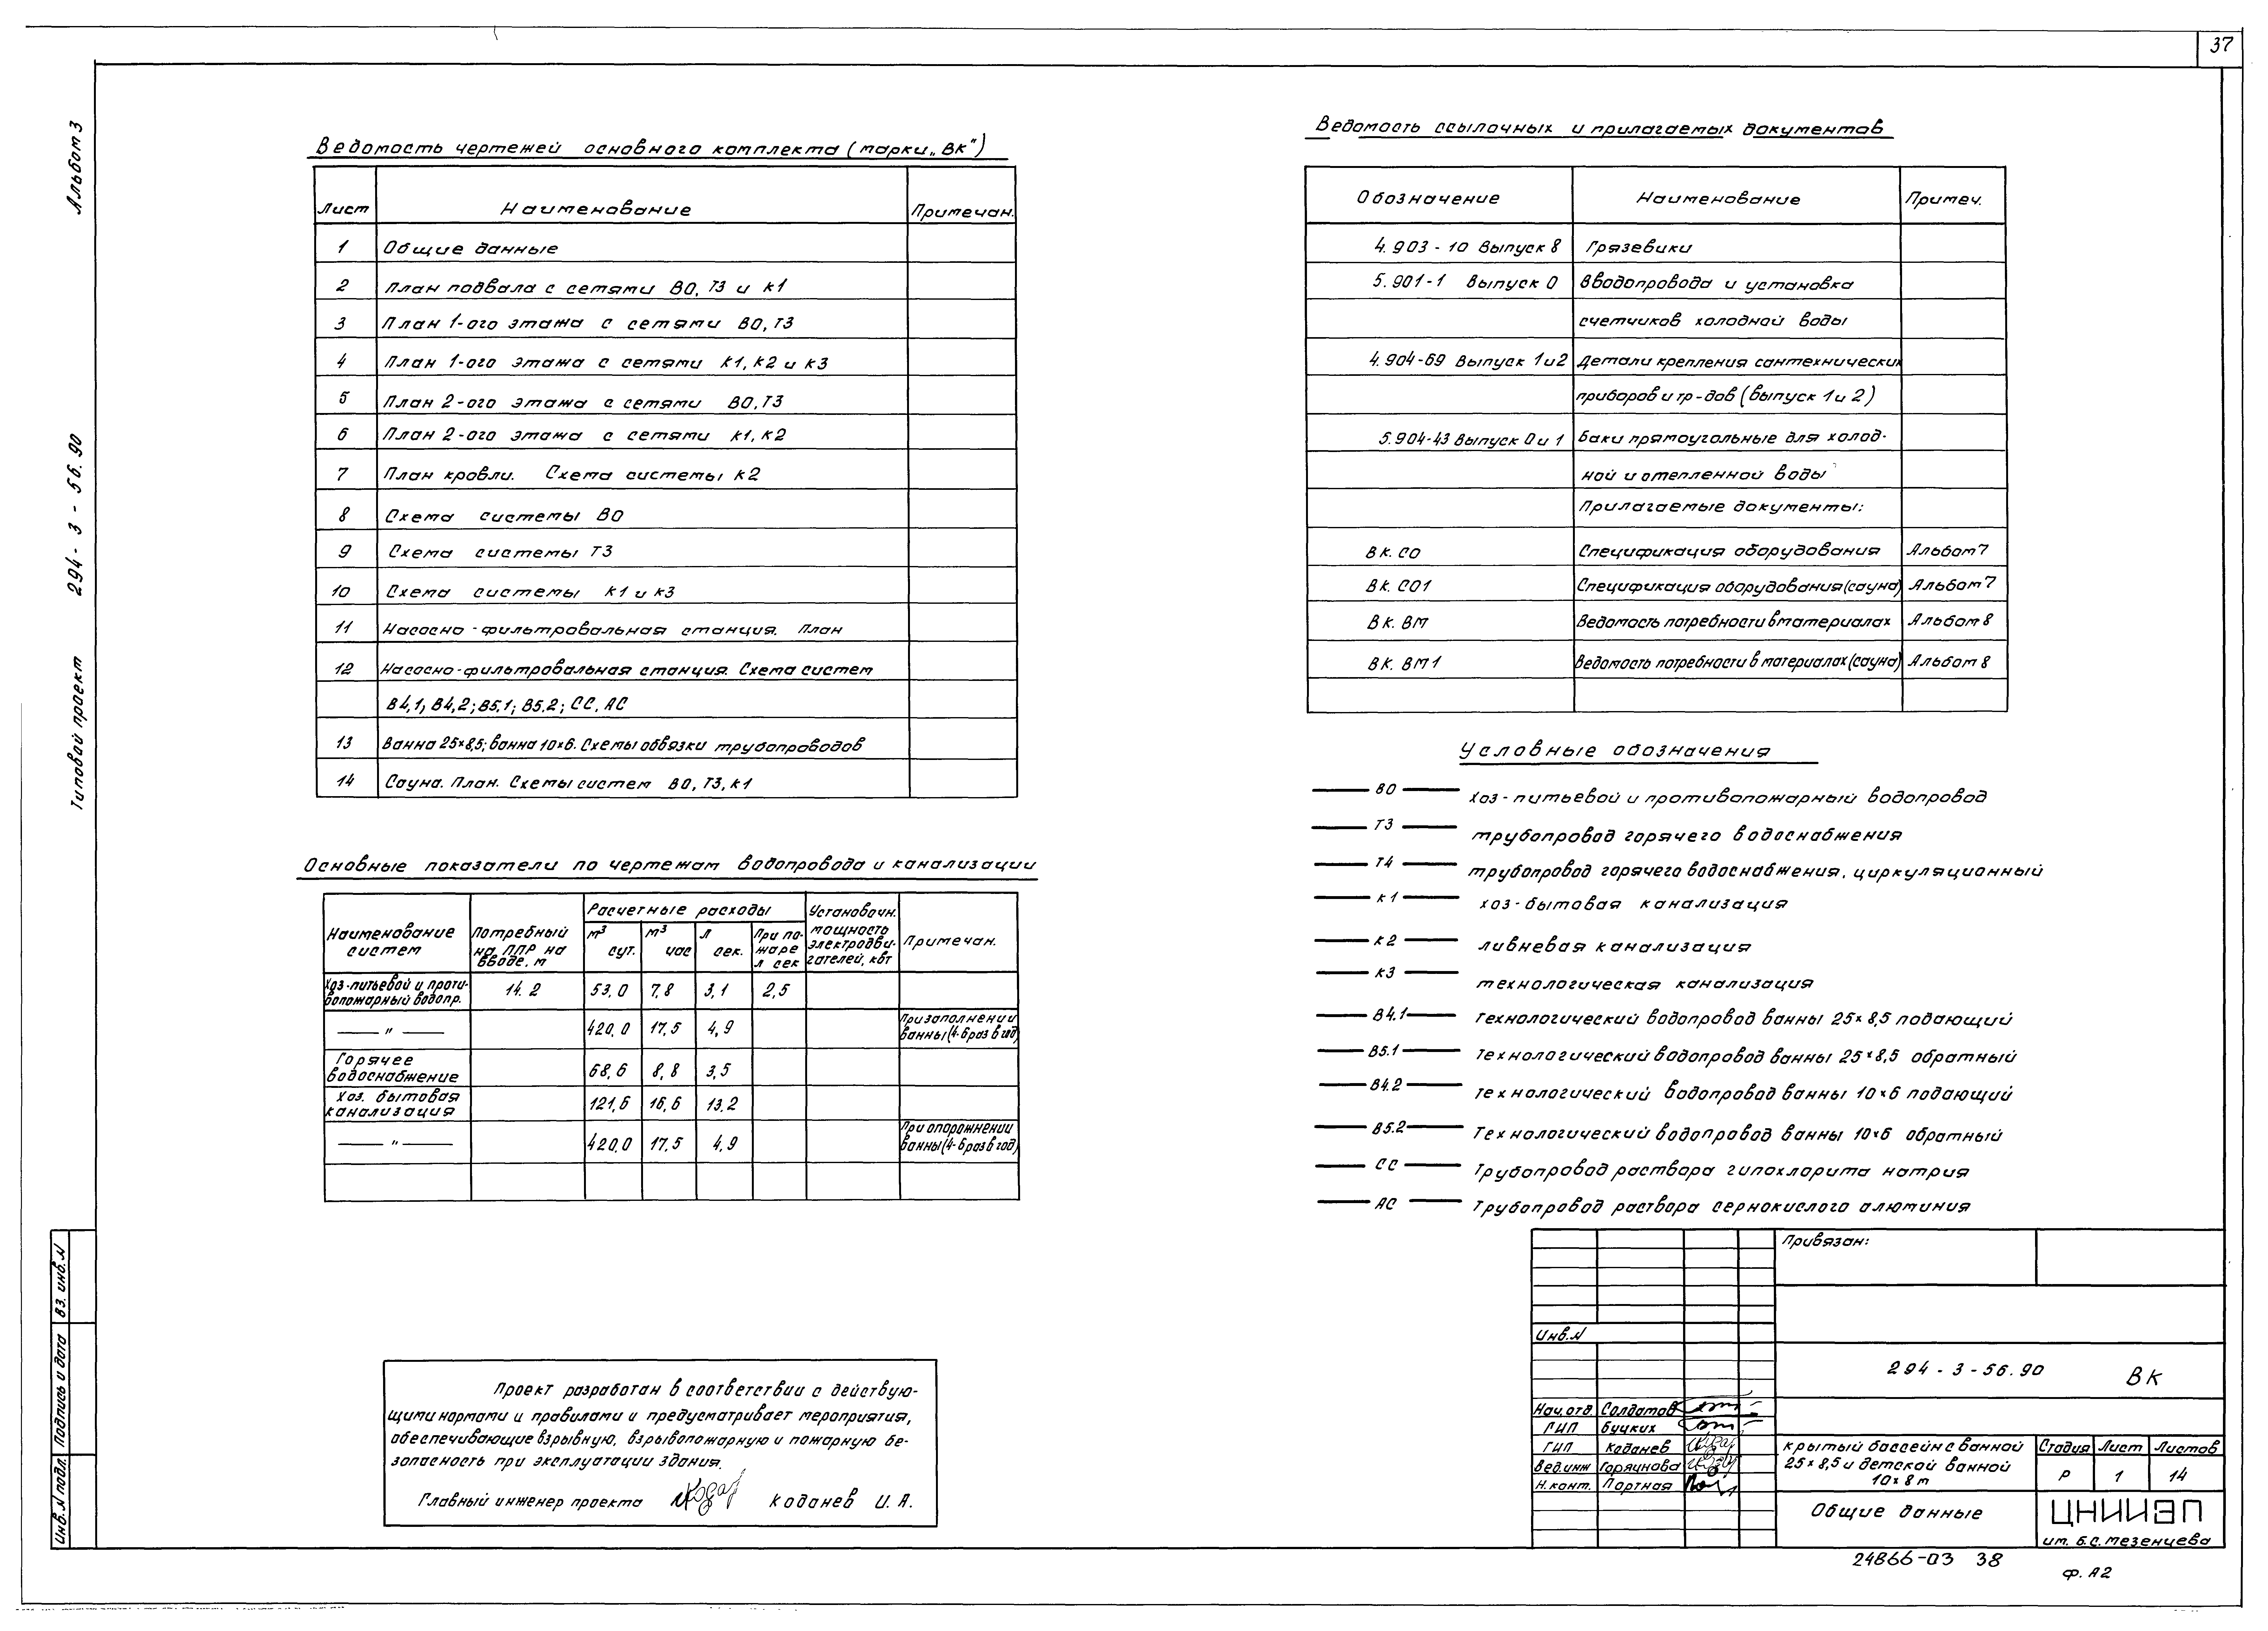 37
Альбом 3
294 - 3 - 56.90
Типовой проект
Ведомость чертежей основного комплекта (марки „ВК")
Лист Наименование Примечан.
1 Общие данные
2 План подвала с сетями В0, Т3 и К1
3 План 1-ого этажа с сетями В0, Т3
4 План 1-ого этажа с сетями К1, К2 и К3
5 План 2-ого этажа с сетями В0, Т3
6 План 2-ого этажа с сетями К1, К2
7 План кровли. Схема системы К2
8 Схема системы В0
9 Схема системы Т3
10 Схема системы К1 и К3
11 Насосно-фильтровальная станция. План
12 Насосно-фильтровальная станция. Схема систем
В4,1; В4,2; В5.1; В5.2; СС, АС
13 Ванна 25×8,5; ванна 10×6. Схемы обвязки трубопроводов
14 Сауна. План. Схемы систем В0, Т3, К1
Основные показатели по чертежам водопровода и канализации
Наименование систем Потребный на, ППР на вводе, м Расчетные расходы Установочн. мощность электродвигателей, квт Примечан.
м³ сут. м³ час л сек. При пожаре л сек
Хоз-питьевой и противопожарный водопр. 14.2 53,0 7,8 3,1 2,5
— " — 420,0 17,5 4,9 При заполнении ванны (4-6 раз в год)
Горячее водоснабжение 68,6 8,8 3,5
Хоз. бытовая канализация 121,6 16,6 13.2
— " — 420,0 17,5 4,9 При опорожнении ванны (4-6 раз в год)
Проект разработан в соответствии с действую-
щими нормами и правилами и предусматривает мероприятия,
обеспечивающие взрывную, взрывопожарную и пожарную бе-
зопасность при эксплуатации здания.
Главный инженер проекта Коданев И. А.
Ведомость ссылочных и прилагаемых документов
Обозначение Наименование Примеч.
4.903 - 10 Выпуск 8 Грязевики
5.901-1 Выпуск 0 Вводопровода и установка
счетчиков холодной воды
4.904-69 Выпуск 1 и 2 Детали крепления сантехнических
приборов и тр-дов (выпуск 1 и 2)
5.904-43 Выпуск 0 и 1 Баки прямоугольные для холод-
ной и отепленной воды
Прилагаемые документы:
ВК. СО Спецификация оборудования Альбом 7
ВК. СО1 Спецификация оборудования (сауна) Альбом 7
ВК. ВМ Ведомость потребности в материалах Альбом 8
ВК. ВМ1 Ведомость потребности в материалах (сауна) Альбом 8
Условные обозначения
В0 Хоз-питьевой и противопожарный водопровод
Т3 трубопровод горячего водоснабжения
Т4 трубопровод горячего водоснабжения, циркуляционный
К1 хоз-бытовая канализация
К2 ливневая канализация
К3 технологическая канализация
В4.1 технологический водопровод ванны 25×8,5 подающий
В5.1 технологический водопровод ванны 25×8,5 обратный
В4.2 технологический водопровод ванны 10×6 подающий
В5.2 Технологический водопровод ванны 10×6 обратный
СС Трубопровод раствора гипохлорита натрия
АС Трубопровод раствора сернокислого алюминия
Привязан:
Инв.N
294 - 3 - 56.90 ВК
Нач.отд. Солдатов
ГИП Буцких
ГИП Коданев
Вед.инж Горячнова
Н.конт. Портная
Крытый бассейн с ванной
25×8,5 и детской ванной
10×8 м
Стадия Лист Листов
Р 1 14
Общие данные
ЦНИИЭП
им. Б.С. Мезенцева
24866-03 38
ф. А2
Вз. инв.N
Подпись и дата
Инв.N подл.